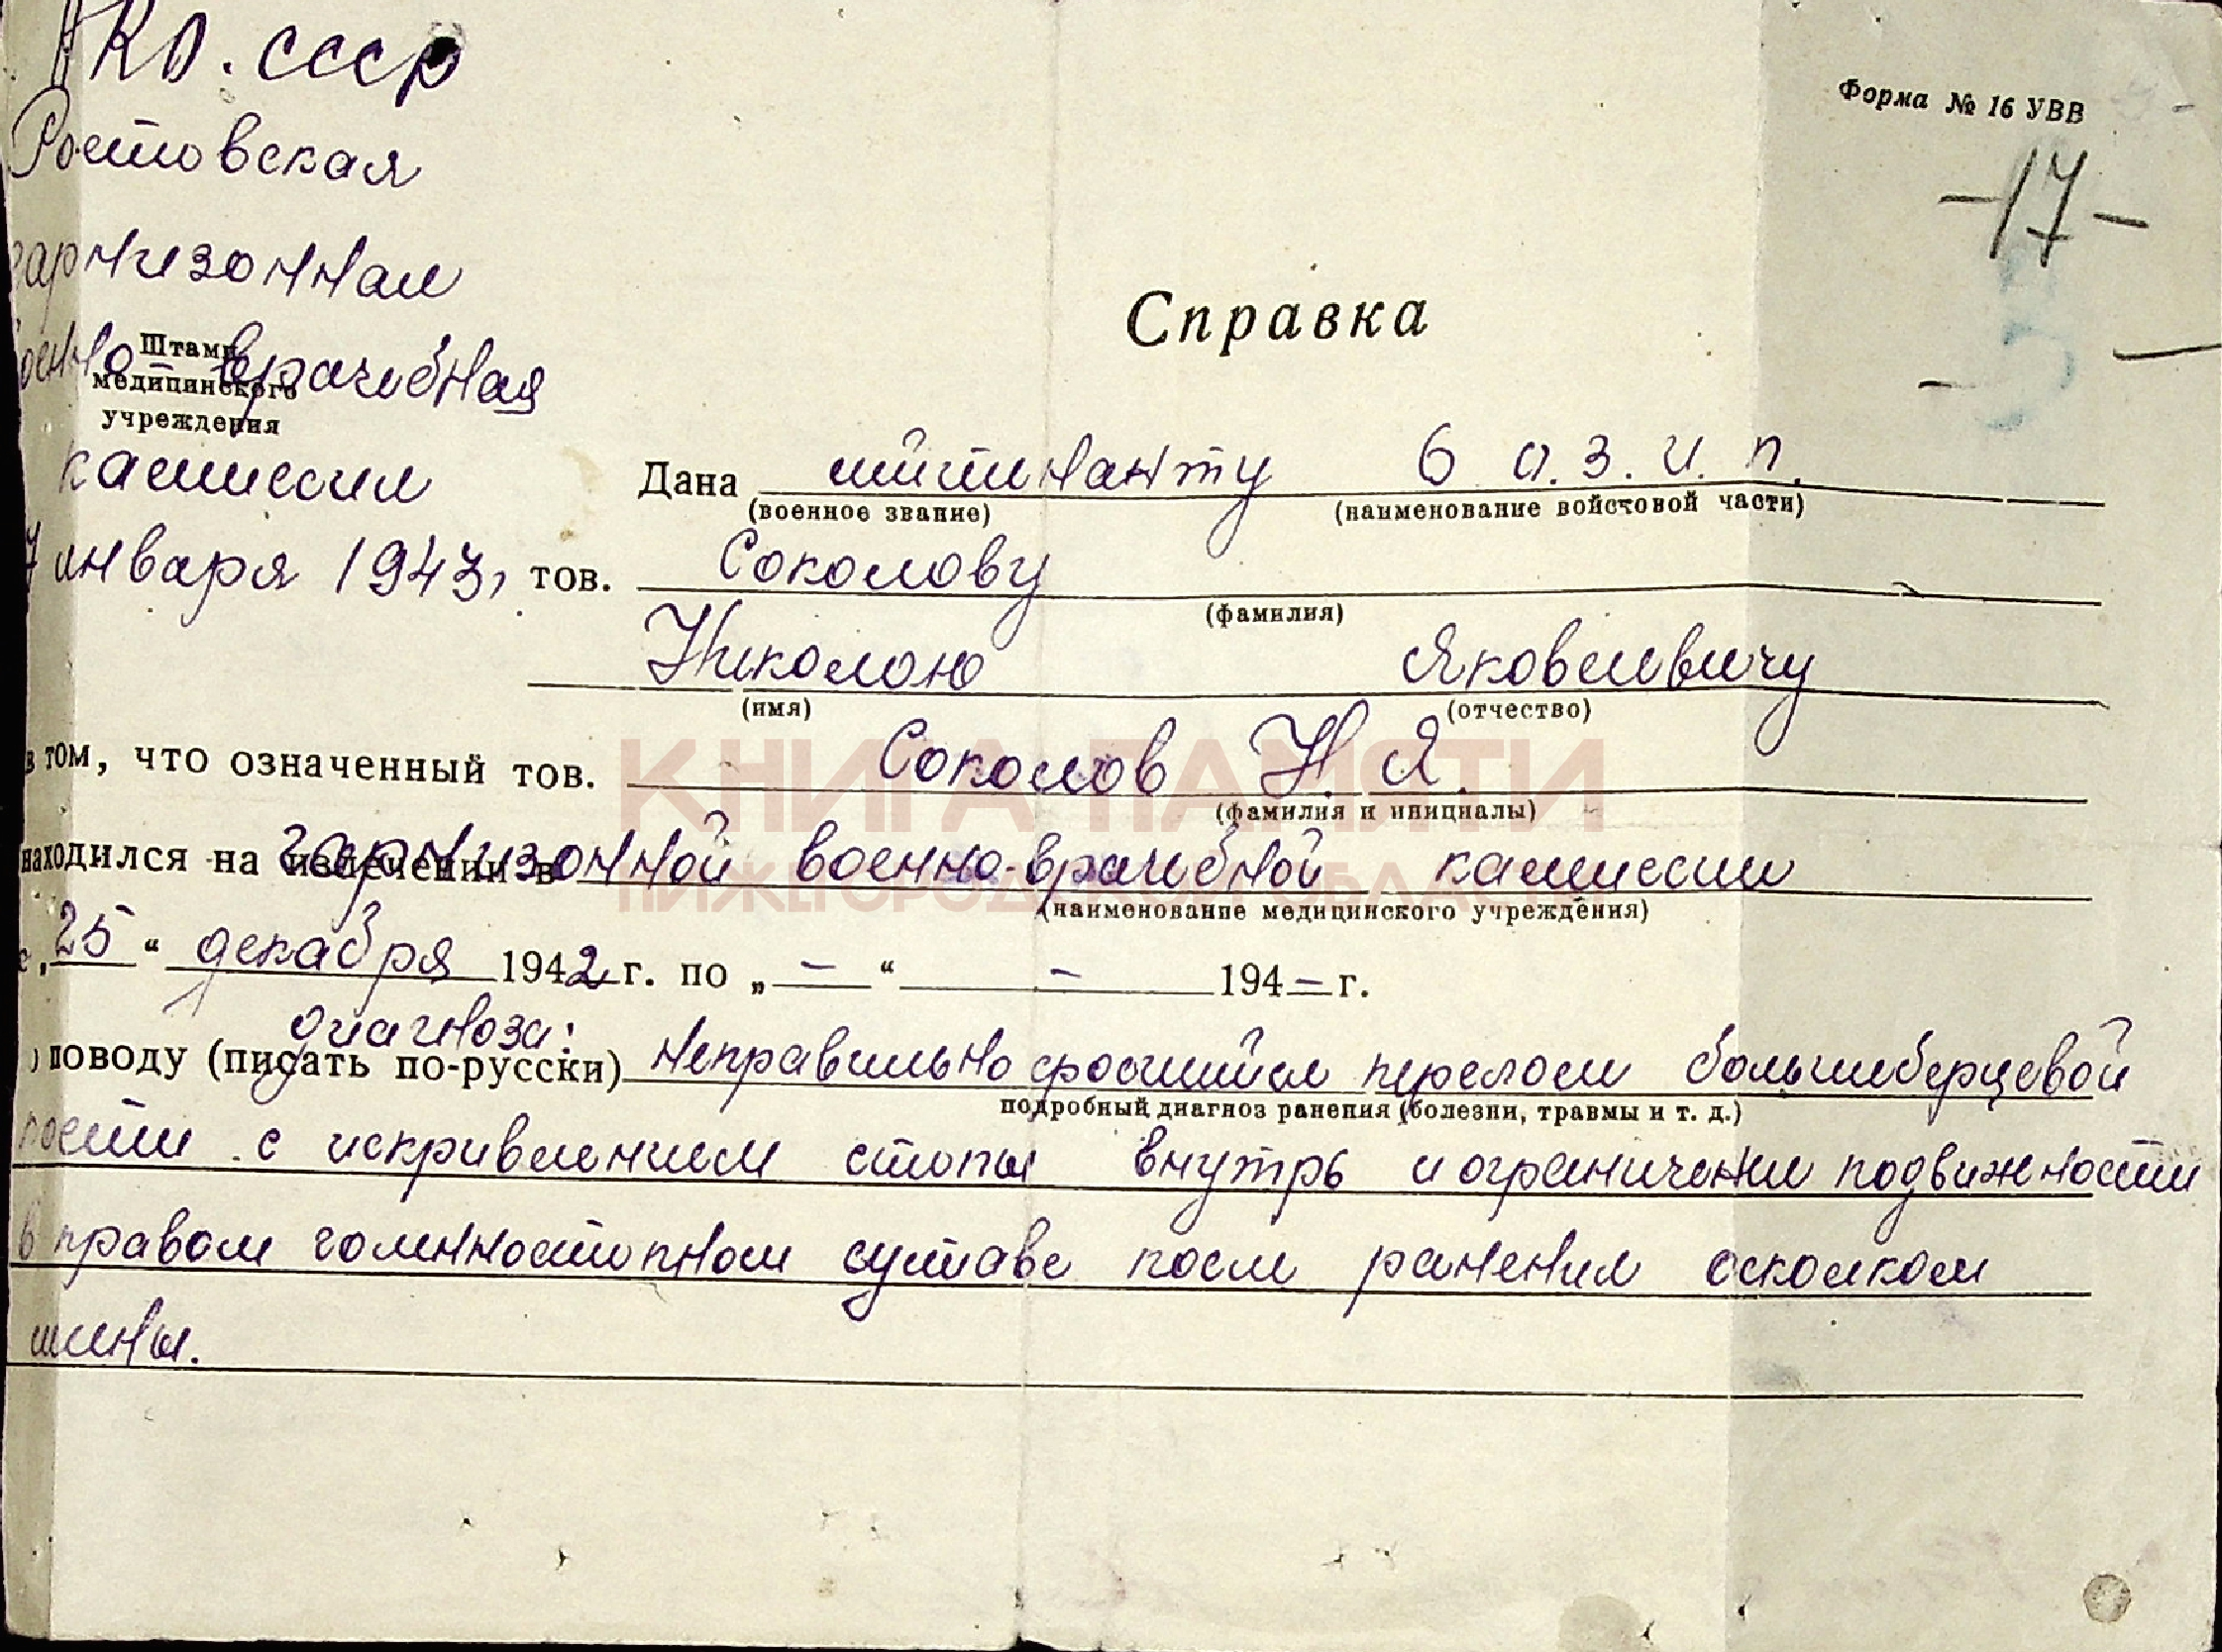 НКО. СССР
Форма № 16 УВВ
Ростовская
-17-
гарнизонная
Справка
военно-врачебная
Штамп
медицинского
учреждения
комиссия
Дана лейтенанту 6 о.з.и.п.
(военное звание) (наименование войсковой части)
7 января 1943г
тов. Соколову
(фамилия)
Николаю Яковлевичу
(имя) (отчество)
в том, что означенный тов. Соколов Н. Я.
(фамилия и инициалы)
находился на излечении в гарнизонной военно-врачебной комиссии
(наименование медицинского учреждения)
с „25“ декабря 1942 г. по „—“ — 194— г.
диагноза:
поводу (писать по-русски) неправильно сросшийся перелом большеберцевой
подробный диагноз ранения (болезни, травмы и т. д.)
кости с искривлением стопы внутрь и ограничения подвижности
в правом голенностопном суставе после ранения осколком
мины.
КНИГА ПАМЯТИ
НИЖЕГОРОДСКОЙ ОБЛАСТИ